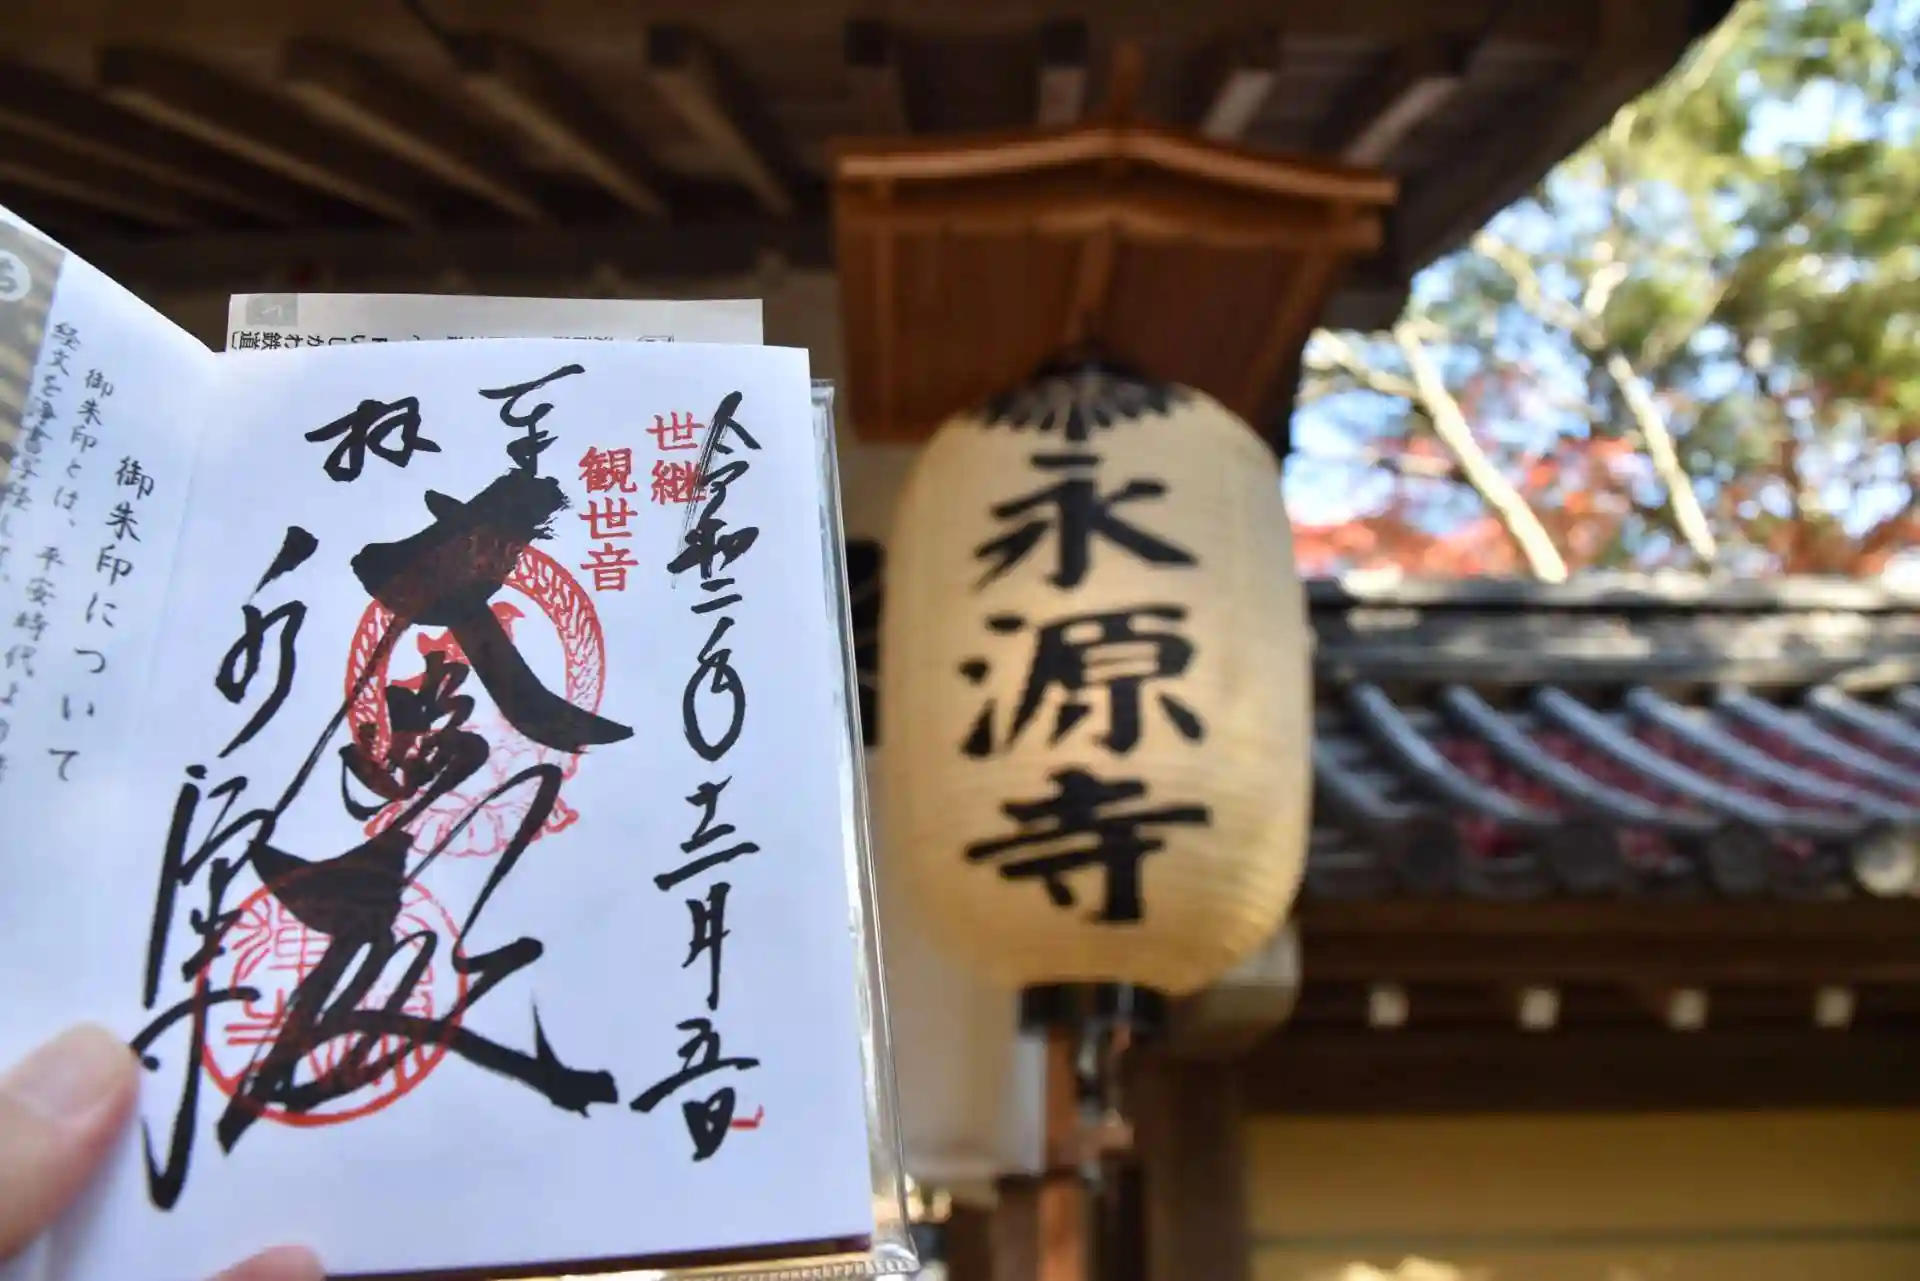 令和二年十二月五日
世継
観世音
奉
拝
大悲殿
永源寺
御朱印について
御朱印とは、平安時代より
経文を浄書写経し
いしかわ鉄道〕
永源寺